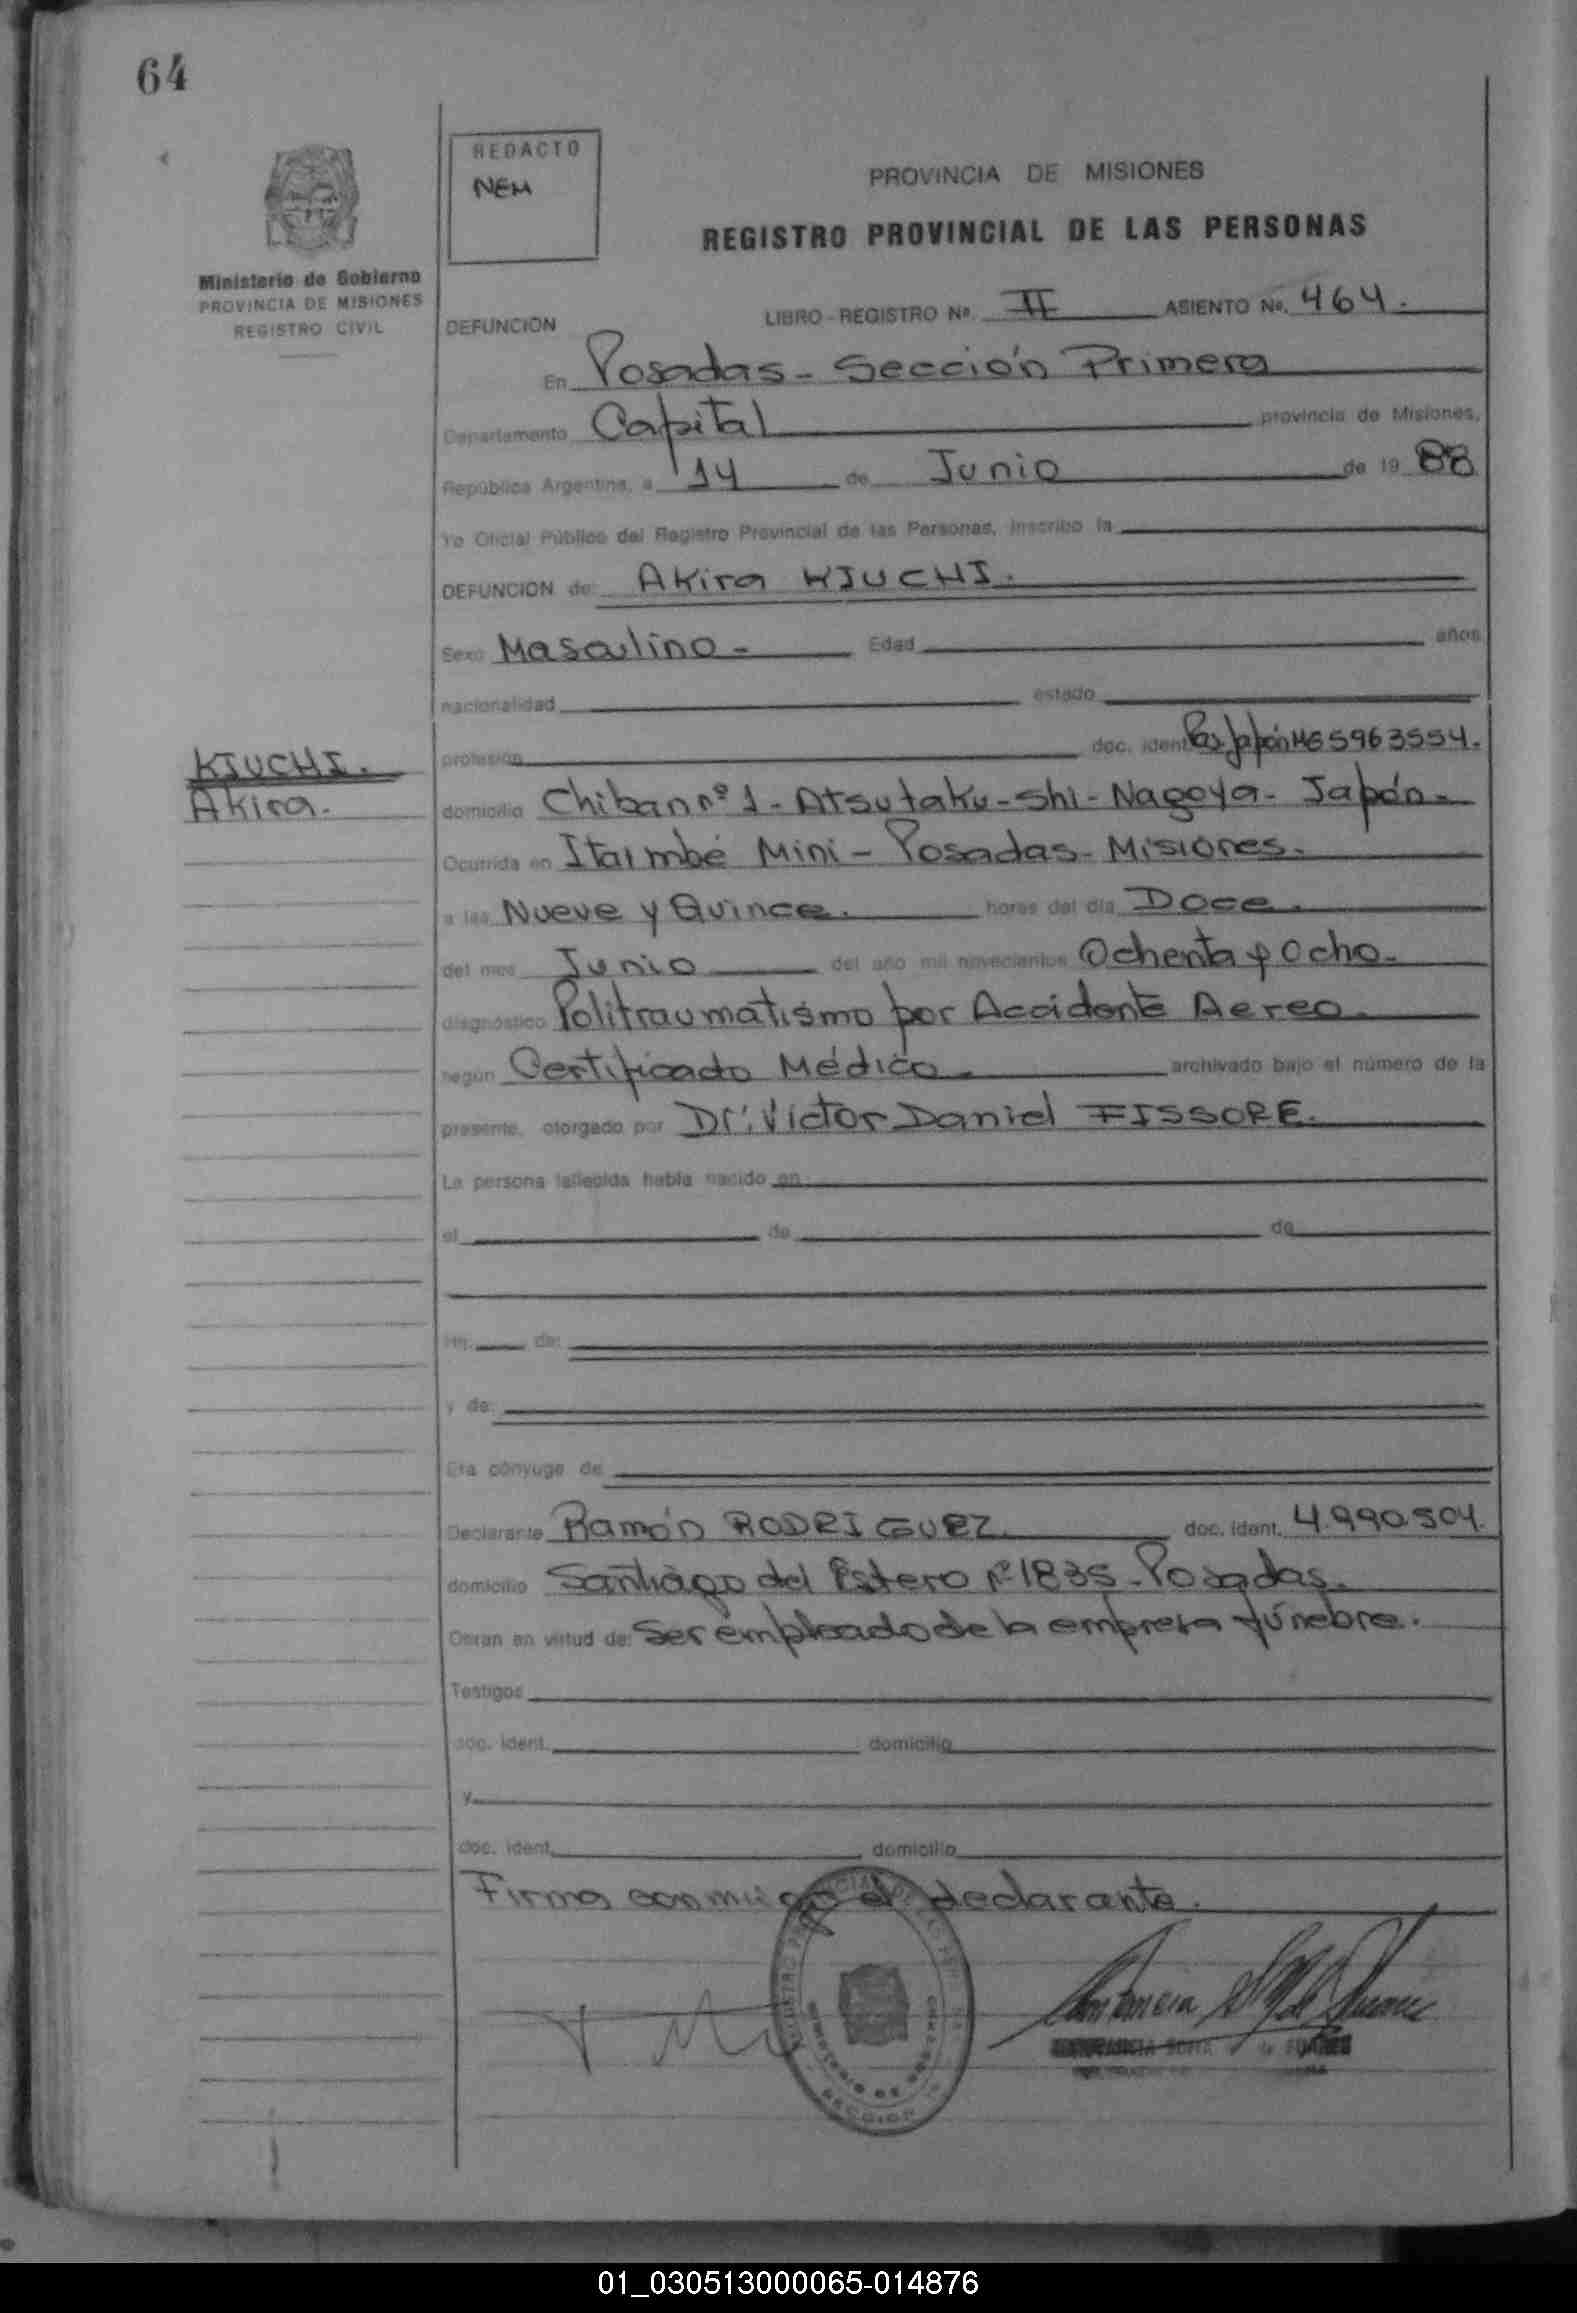 64
REDACTO
NEM
PROVINCIA DE MISIONES
REGISTRO PROVINCIAL DE LAS PERSONAS
Ministerio de Gobierno
PROVINCIA DE MISIONES
REGISTRO CIVIL
DEFUNCION
LIBRO - REGISTRO No. II ASIENTO No. 464.
En Posadas - Sección Primera
Departamento Capital provincia de Misiones,
República Argentina, a 14 de Junio de 19 88
Yo Oficial Público del Registro Provincial de las Personas, inscribo la
DEFUNCION de: Akira KIUCHI.
Sexo Masculino - Edad años
nacionalidad estado
profesión doc. ident. Pas. Japón MG5963554.
KIUCHI.
Akira.
domicilio Chiban nº 1 - Atsutaku - Shi - Nagoya - Japón -
Ocurrida en Itaimbé Mini - Posadas - Misiones.
a las Nueve y Quince. horas del día Doce.
del mes Junio del año mil novecientos Ochenta y Ocho.
diagnóstico Politraumatismo por Accidente Aereo.
según Certificado Médico. archivado bajo el número de la
presente, otorgado por Dr. Victor Daniel FISSORE.
La persona fallecida había nacido en
el de de
Hij. de:
y de:
Era cónyuge de
Declarante Ramón RODRIGUEZ. doc. ident. 4.990.504.
domicilio Santiago del Estero nº 1835 - Posadas.
Obran en virtud de: Ser empleado de la empresa fúnebre.
Testigos
doc. ident. domicilio
y
doc. ident. domicilio
Firma conmigo el declarante.
01_030513000065-014876